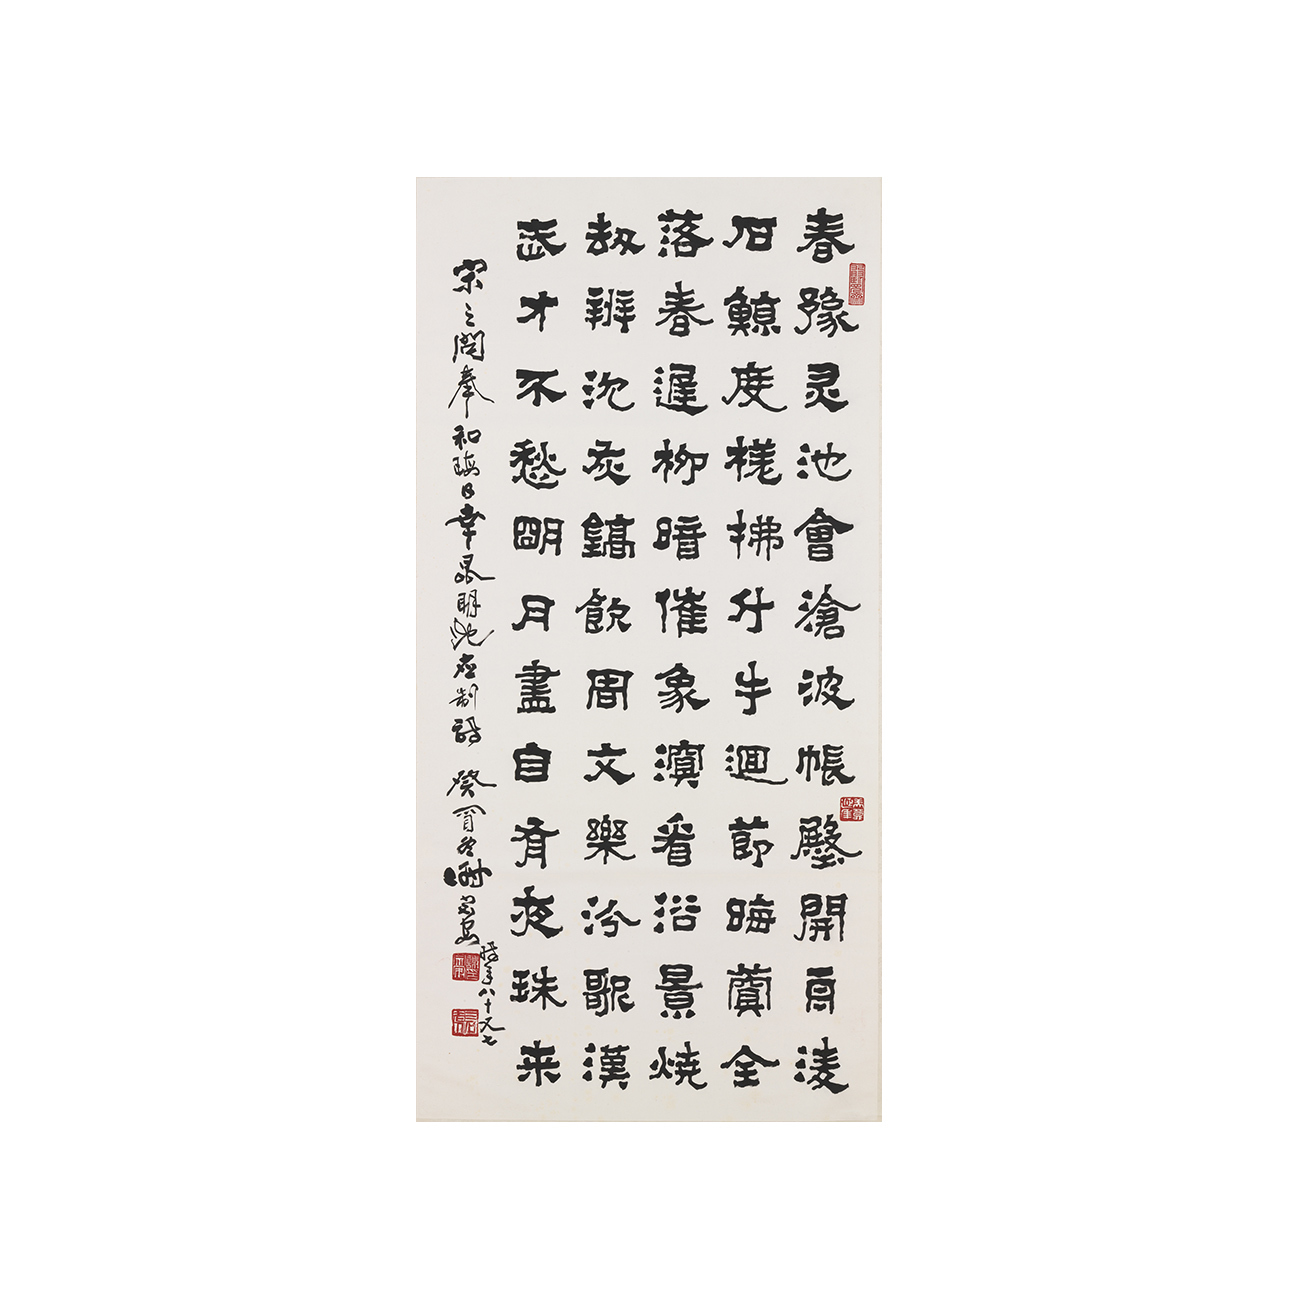 春豫灵池會滄波帳殿開舟凌
石鯨度槎拂斗牛迴節晦蓂全
落春遲柳暗催象溟看浴景燒
劫辨沈灰鎬飲周文樂汾歌漢
武才不愁明月盡自有夜珠来
宋之問奉和晦日幸昆明池应制詩 癸冬
時年八十又七